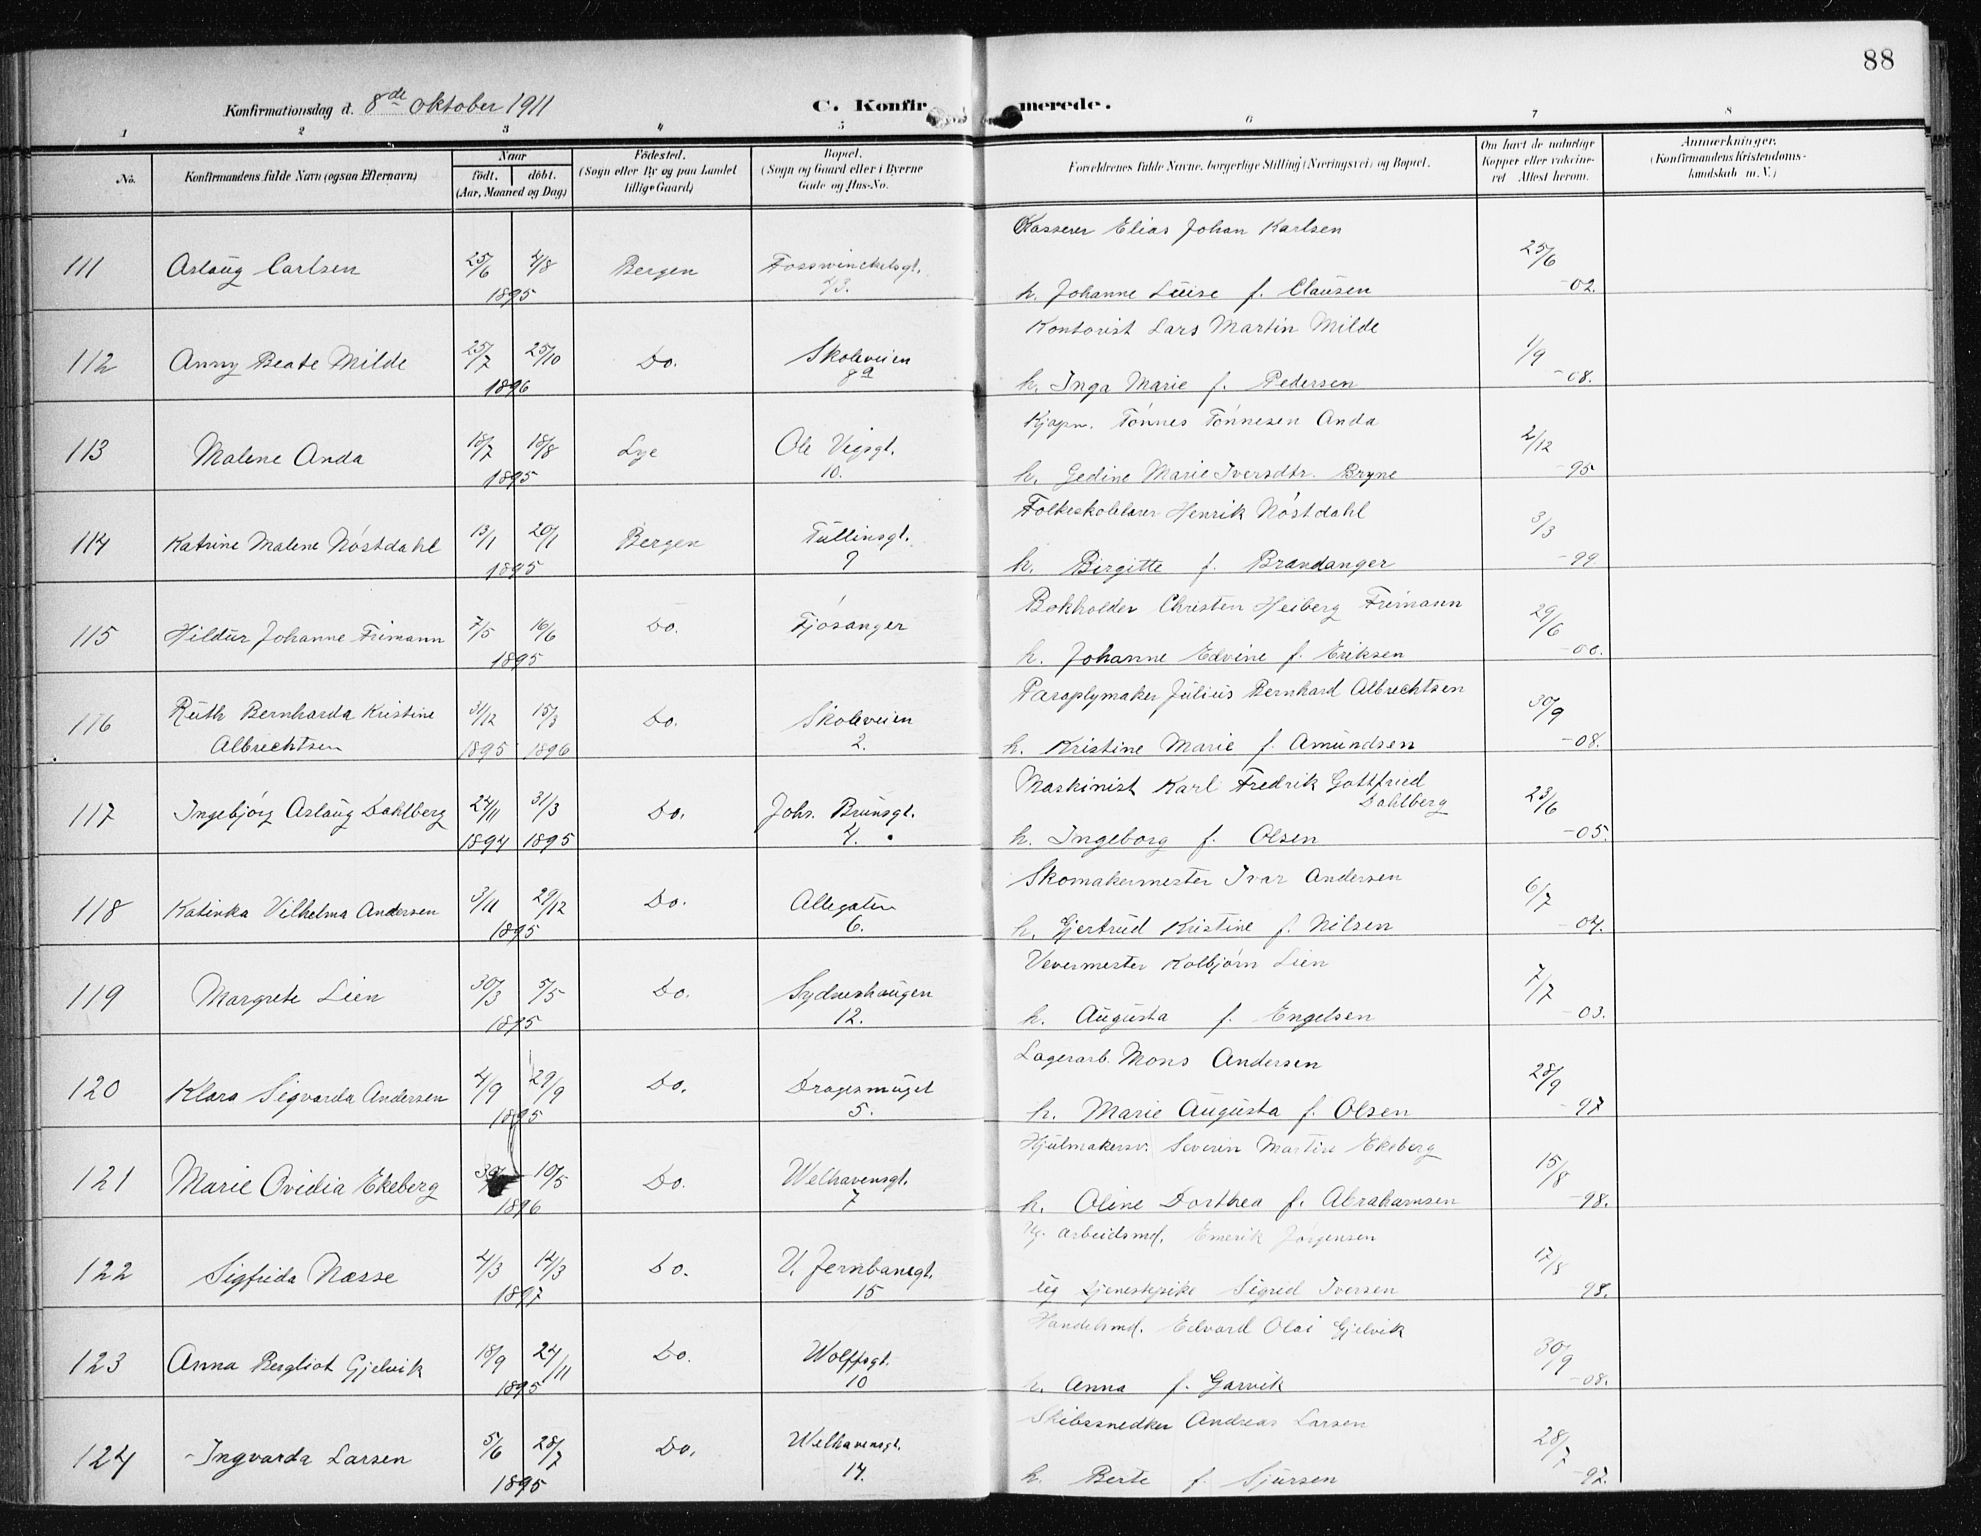 88
Konfirmationsdag d. 8de oktober 1911
C. Konfirmerede.
1 2 3 4 5 6 7 8
No.
Konfirmandens fulde Navn (ogsaa Efternavn)
Naar
födt. döbt.
(Aar, Maaned og Dag)
Födested.
(Sogn eller By og paa Landet
tillige Gaard)
Bopæl.
(Sogn og Gaard eller i Byerne
Gade og Hus-No.
Forældrenes fulde Navne, borgerlige Stilling (Næringsvei) og Bopæl.
Om havt de naturlige
Kopper eller vakcine-
ret Attest herom.
Anmærkninger.
(Konfirmandens Kristendoms-
kundskab m.V.)
Kasserer Elias Johan Karlsen
111 Aslaug Carlsen 25/6 4/8 Bergen Fosswinckelsgt. 25/6
1895 43. h. Johanne Luise f. Clausen -02.
Kontorist Lars Martin Milde
112 Anny Beate Milde 25/7 25/10 Do. Skoleveien 1/9
1896 8a h. Inga Marie f. Pedersen -08.
Kjøpm. Tönnes Tönnesen Anda
113 Malene Anda 18/7 18/8 Lye Ole Vigsgt. 2/12
1895 10. h. Gedine Marie Iversdtr. Bryne -95
Folkeskolelærer Henrik Nöstdahl
114 Katrine Malene Nöstdahl 13/1 20/1 Bergen Tullinsgt. 3/3
1895 9 h. Birgitte f. Brandanger -99.
Bokholder Christen Heiberg Frimann
115 Hildur Johanne Frimann 7/5 16/6 Do. Fjösanger 29/6
1895 h. Johanne Edvine f. Eriksen -00.
Paraplymaker Julius Bernhard Albrechtsen
116 Ruth Bernharda Kristine 31/12 15/3 Do. Skoleveien 30/9
Albrechtsen 1895 1896 2. h. Kristine Marie f. Amundsen -08.
Maskinist Karl Fredrik Gottfried
Dahlberg
117 Ingebjörg Aslaug Dahlberg 24/11 31/3 Do. Johs. Brunsgt. 23/6
1894 1895 4. h. Ingeborg f. Olsen -05.
Skomakermester Ivar Andersen
118 Katinka Vilhelma Andersen 3/11 29/12 Do. Allegaten 6/7
1895 6. h. Gjertrud Kristine f. Nilsen -04.
Vevermester Kolbjørn Lien
119 Margrete Lien 30/3 5/5 Do. Sydneshaugen 7/7
1895 12. h. Augusta f. Engelsen -03.
Lagerarb. Mons Andersen
120 Klara Sigvarda Andersen 4/9 29/9 Do. Dragesmuget 28/9
1895 5. h. Marie Augusta f. Olsen -97
Hjulmakersv. Severin Martin Ekeberg
121 Marie Ovidia Ekeberg 10/5 Do. Welhavensgt. 15/8
1896 7 h. Oline Dorthea f. Abrahamsen -98.
Ug. arbeidsmd. Emerik Jørgensen
122 Sigfrida Næsse 4/3 14/3 Do. U. Jernbanegt. 17/8
1897 15 ug tjenestepike Sigrid Iversen -98.
Handelsmd. Edvard Olai Gjelvik
123 Anna Bergliot Gjelvik 18/9 24/11 Do. Wolffsgt. 30/9
1895 10 h. Anna f. Garvik -08.
Skibssnedker Andreas Larsen
124 Ingvarda Larsen 5/6 28/7 Do. Welhavensgt. 28/7
1895 14. h. Berte f. Sjursen -97.